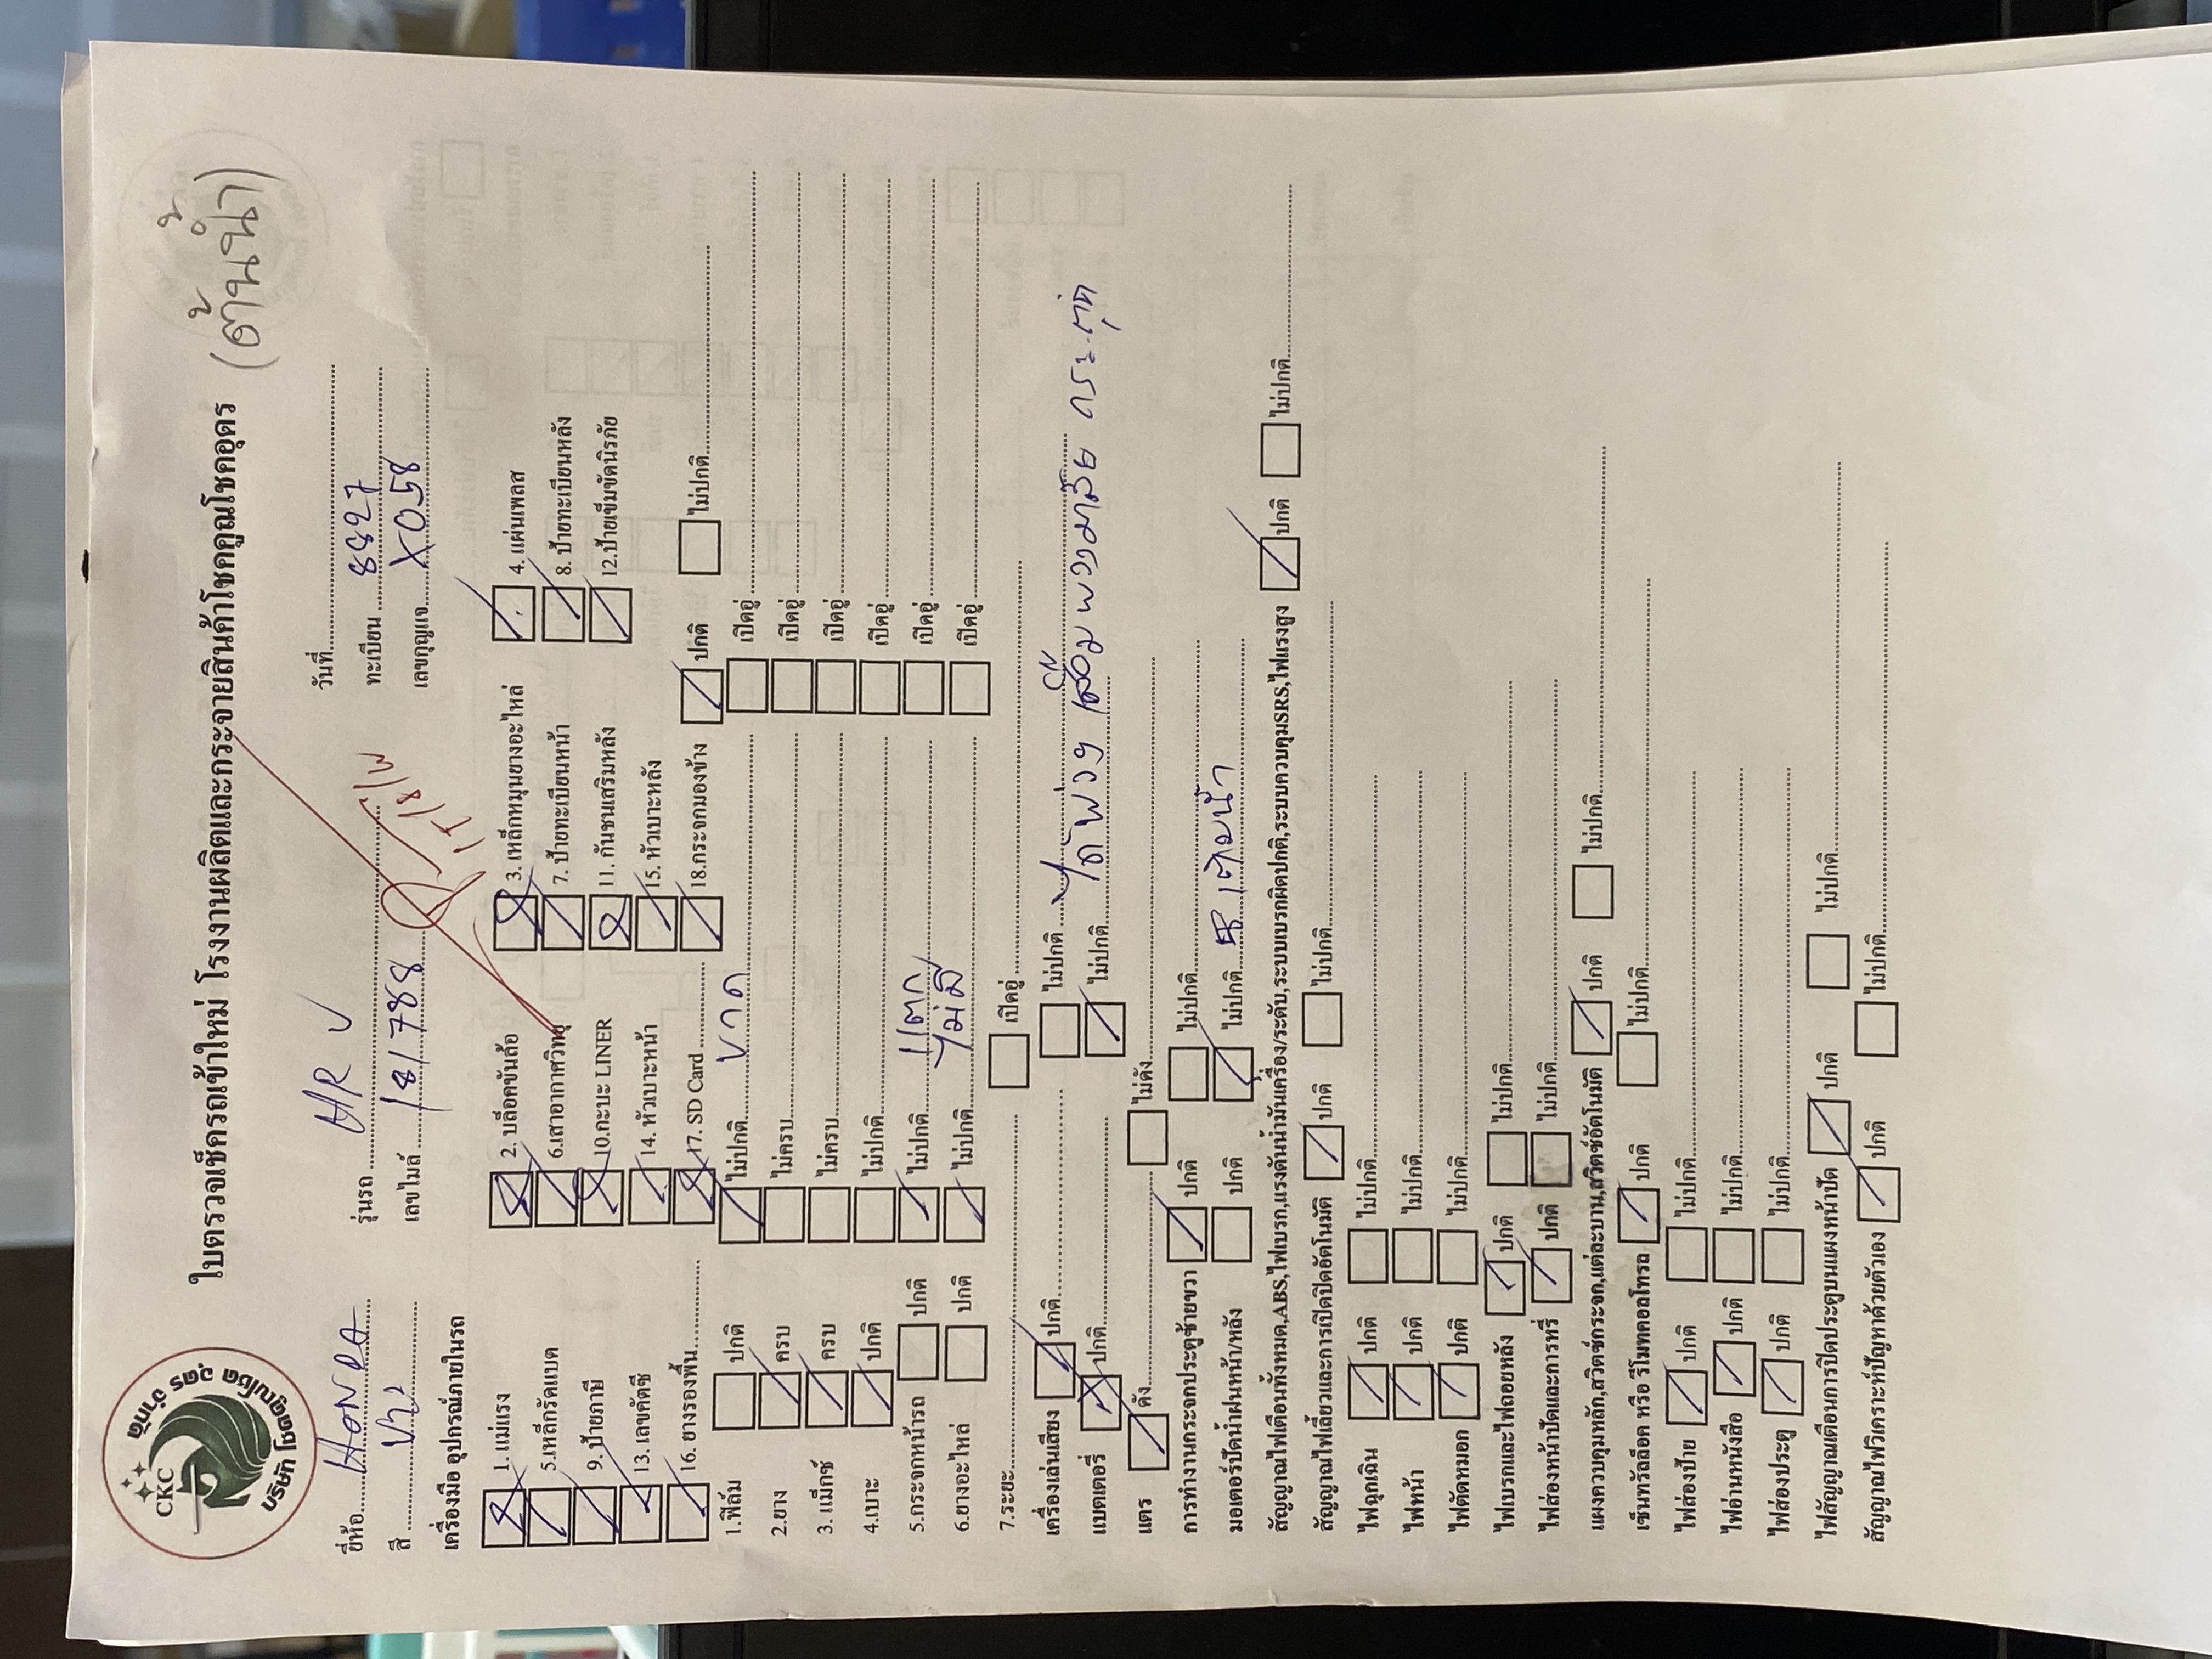 CKC
บริษัท โชคคูณโชค อุดร จำกัด
ใบตรวจเช็ครถเข้าใหม่ โรงงานผลิตและกระจายสินค้าโชคคูณโชคอุดร (ด้านน้ำ)
ยี่ห้อ HONDA รุ่นรถ HR V วันที่
สี ขาว เลขไมล์ 181788 ทะเบียน 8827 เลขกุญแจ X058
เครื่องมือ อุปกรณ์ภายในรถ
1. แม่แรง 2. บล็อคขันล้อ 3. เหล็กหมุนยางอะไหล่ 4. แผ่นเพลส
5.เหล็กรัดแบต 6.เสาอากาศวิทยุ 7. ป้ายทะเบียนหน้า 8. ป้ายทะเบียนหลัง
9. ป้ายภาษี 10.กะบะ LINER 11. กันชนเสริมหลัง 12.ป้ายเข็มขัดนิรภัย
13. เลขคัตซี 14. หัวเบาะหน้า 15. หัวเบาะหลัง
16. ยางรองพื้น 17. SD Card 18.กระจกมองข้าง ปกติ ไม่ปกติ
1.ฟิล์ม ปกติ ไม่ปกติ ขาด เปิดอู่
2.ยาง ครบ ไม่ครบ เปิดอู่
3. แม็กซ์ ครบ ไม่ครบ เปิดอู่
4.เบาะ ปกติ ไม่ปกติ เปิดอู่
5.กระจกหน้ารถ ปกติ ไม่ปกติ แตก เปิดอู่
6.ยางอะไหล่ ปกติ ไม่ปกติ ไม่มี เปิดอู่
7.ระยะ เปิดอู่
เครื่องเล่นเสียง ปกติ ไม่ปกติ
แบตเตอรี่ ปกติ ไม่ปกติ
แตร ดัง ไม่ดัง
การทำงานกระจกประตูซ้ายขวา ปกติ ไม่ปกติ
มอเตอร์ปัดน้ำฝนหน้า/หลัง ปกติ ไม่ปกติ
สัญญาณไฟเตือนทั้งหมด,ABS,ไฟเบรก,แรงดันน้ำมันเครื่อง/ระดับ,ระบบเบรกผิดปกติ,ระบบควบคุมSRS,ไฟแรงสูง ปกติ ไม่ปกติ
สัญญาณไฟเลี้ยวและการเปิดปิดอัตโนมัติ ปกติ ไม่ปกติ
ไฟฉุกเฉิน ปกติ ไม่ปกติ
ไฟหน้า ปกติ ไม่ปกติ
ไฟตัดหมอก ปกติ ไม่ปกติ
ไฟเบรกและไฟถอยหลัง ปกติ ไม่ปกติ
ไฟส่องหน้าปัดและการหรี่ ปกติ ไม่ปกติ
แผงควบคุมหลัก,สวิตช์กระจก,แต่ละบาน,สวิตซ์อัตโนมัติ ปกติ ไม่ปกติ
เซ็นทรัลล็อค หรือ รีโมทคอลโทรล ปกติ ไม่ปกติ
ไฟส่องป้าย ปกติ ไม่ปกติ
ไฟอ่านหนังสือ ปกติ ไม่ปกติ
ไฟส่องประตู ปกติ ไม่ปกติ
ไฟสัญญาณเตือนการปิดประตูบนแผงหน้าปัด ปกติ ไม่ปกติ
สัญญาณไฟวิเคราะห์ปัญหาด้วยตัวเอง ปกติ ไม่ปกติ